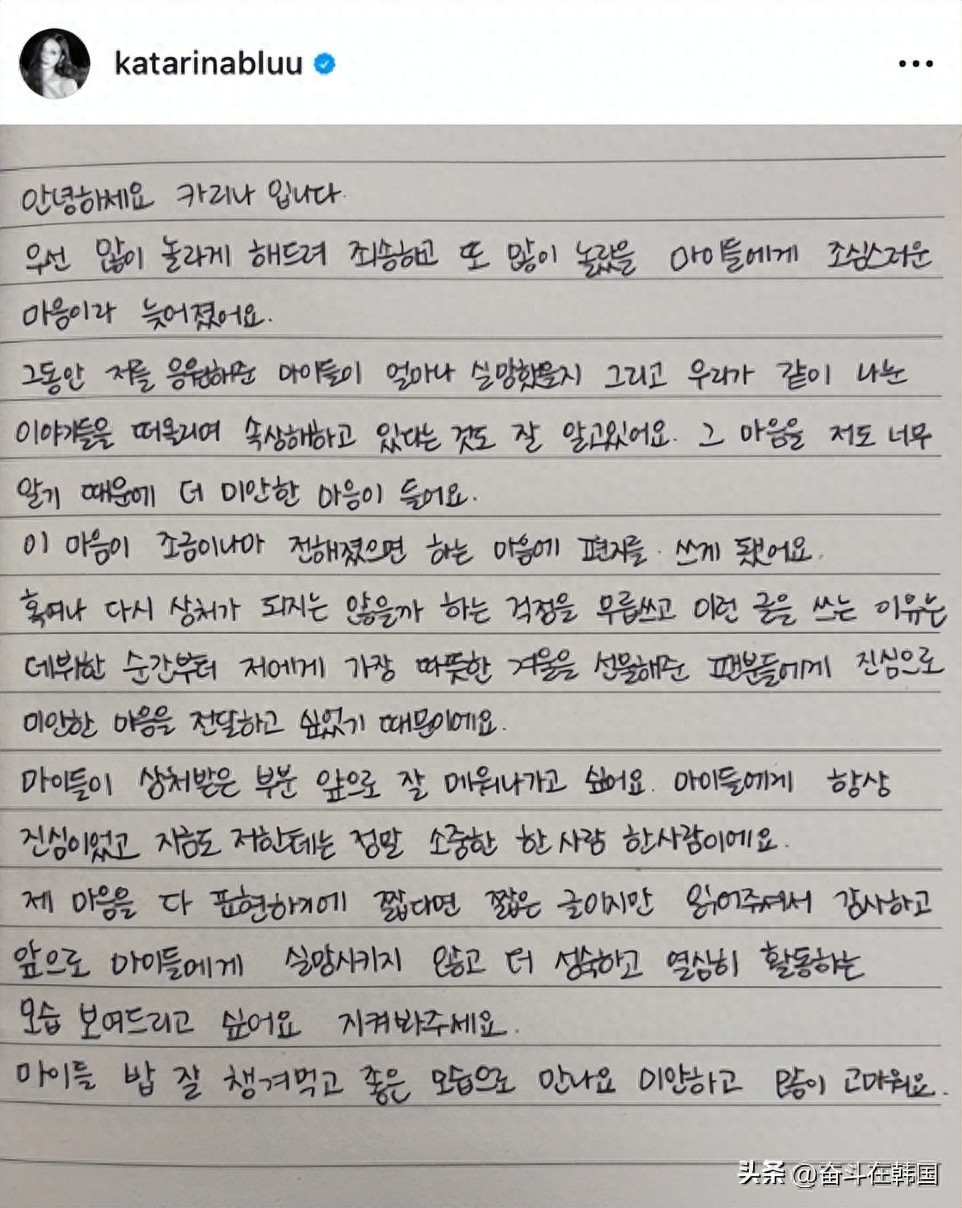 katarinabluu
안녕하세요 카리나 입니다.
우선 많이 놀라게 해드려 죄송하고 또 많이 놀랐을 마이들에게 조심스러운
마음이라 늦어졌어요.
그동안 저를 응원해준 마이들이 얼마나 실망했을지 그리고 우리가 같이 나눈
이야기들을 떠올리며 속상해하고 있다는 것도 잘 알고있어요. 그 마음을 저도 너무
알기 때문에 더 미안한 마음이 들어요.
이 마음이 조금이나마 전해졌으면 하는 마음에 편지를 쓰게 됐어요.
혹여나 다시 상처가 되지는 않을까 하는 걱정을 무릅쓰고 이런 글을 쓰는 이유는
데뷔한 순간부터 저에게 가장 따뜻한 겨울을 선물해준 팬분들에게 진심으로
미안한 마음을 전달하고 싶었기 때문이에요.
마이들이 상처받은 부분 앞으로 잘 메워나가고 싶어요. 마이들에게 항상
진심이었고 지금도 저한테는 정말 소중한 한 사람 한사람이에요.
제 마음을 다 표현하기에 짧다면 짧은 글이지만 읽어주셔서 감사하고
앞으로 마이들에게 실망시키지 않고 더 성숙하고 열심히 활동하는
모습 보여드리고 싶어요 지켜봐주세요.
마이들 밥 잘 챙겨먹고 좋은 모습으로 만나요 미안하고 많이 고마워요.
头条 @奋斗在韩国